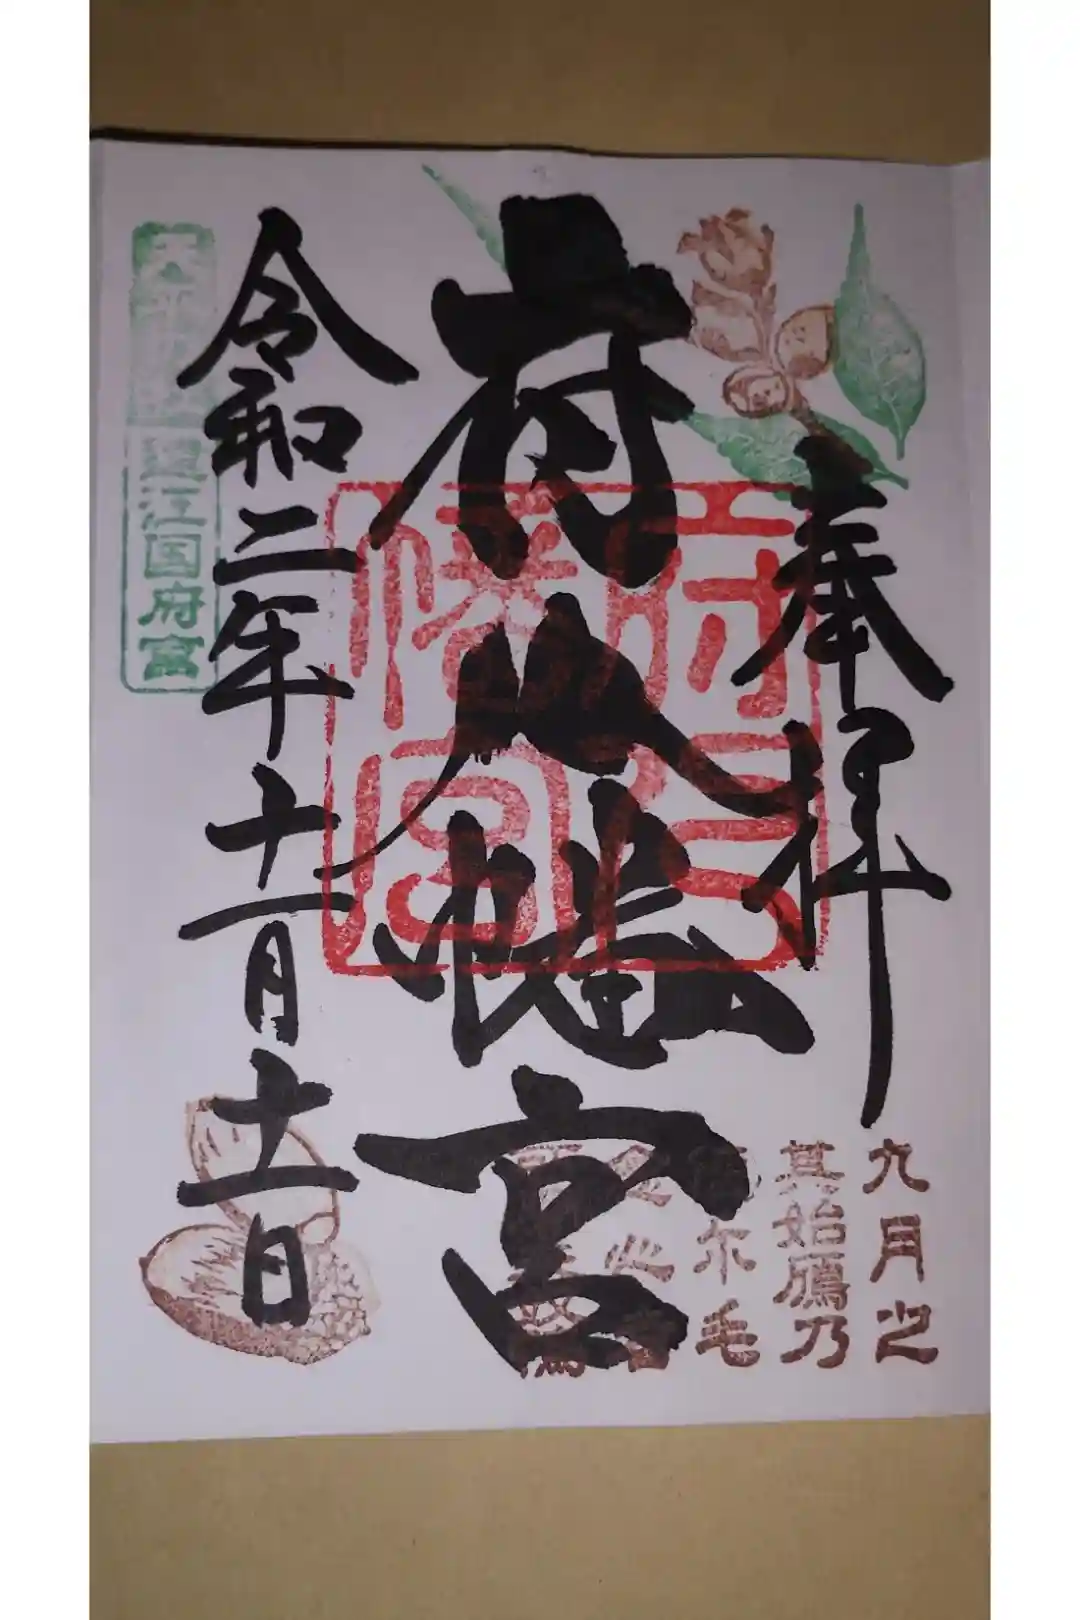 奉拝
府八幡宮
令和二年十一月十一日
遠江国府宮
府八幡宮
九月之
其始鴈乃
尓毛